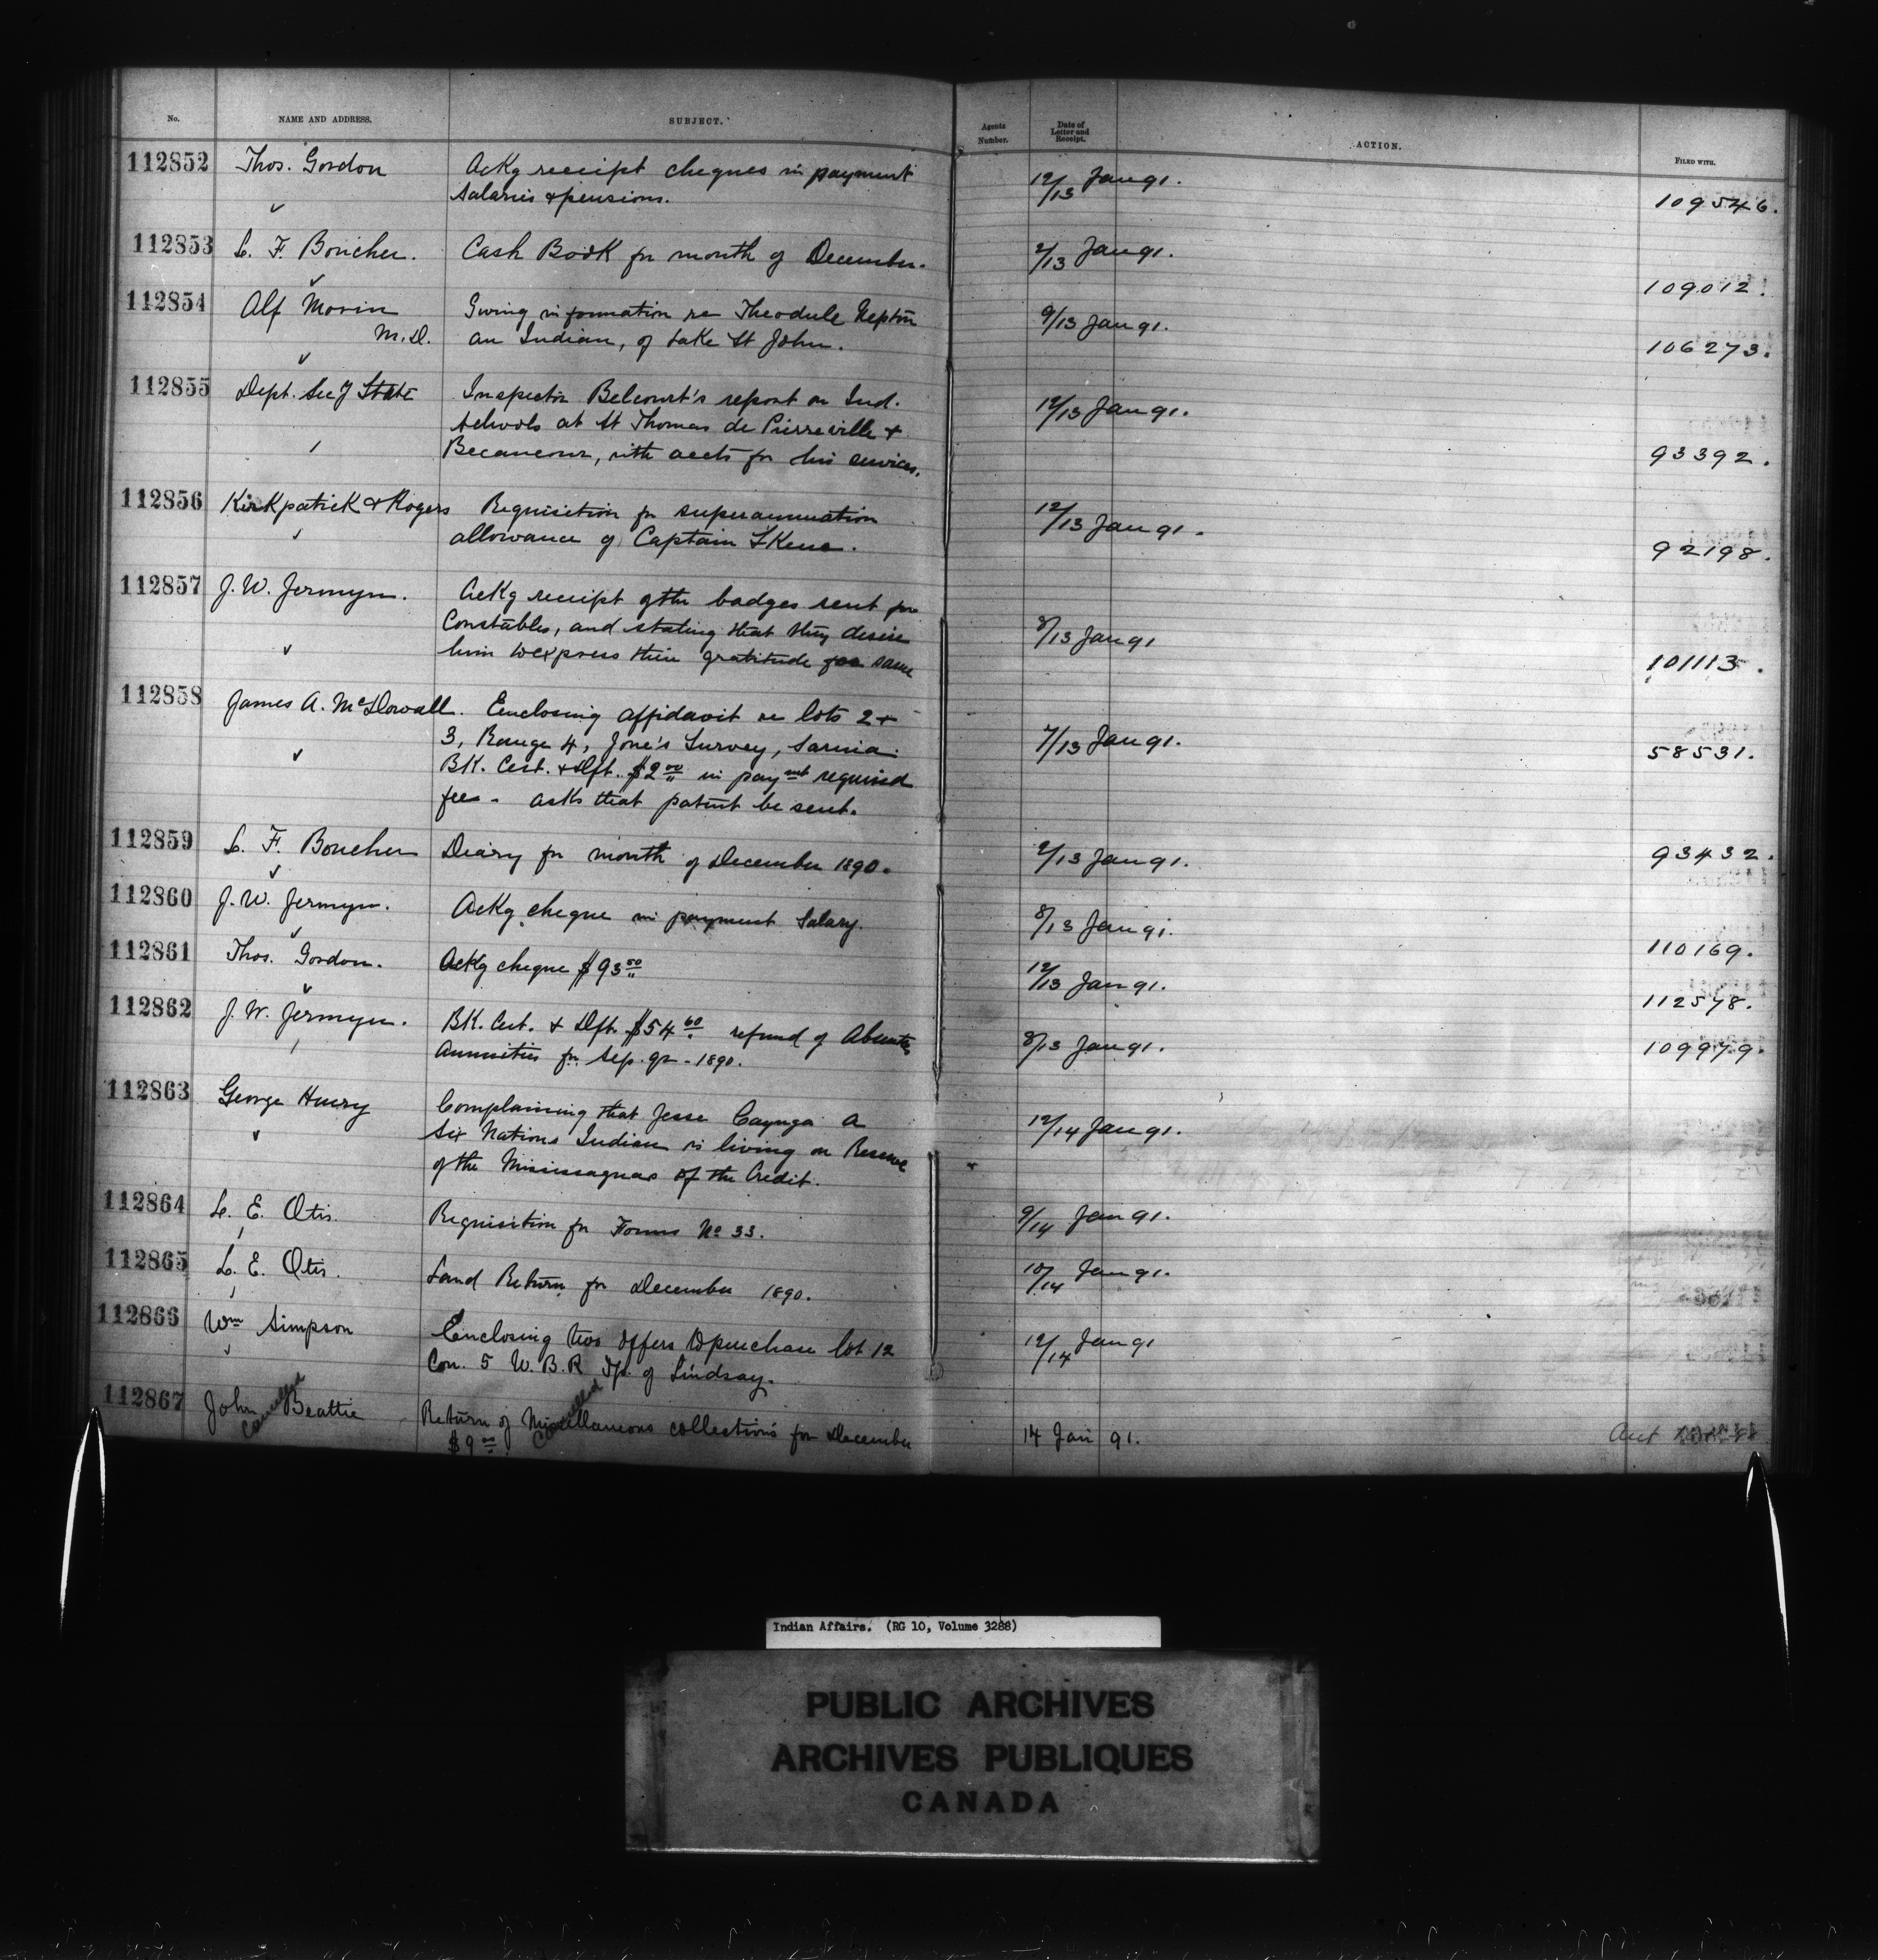 No. NAME AND ADDRESS. SUBJECT. Agents Number. Date of Letter and Receipt. ACTION. FILED WITH.
112852 Thos. Gordon Ackg receipt cheques in payment 12/13 Jan 91.
salaries & pensions. 109546.
112853 L. F. Boucher. Cash Book for month of December. 2/13 Jan 91.
109012.
112854 Alf Morin Giving information re Theodule Neptn 9/13 Jan 91.
M.D. an Indian, of Lake St John. 106273.
112855 Dept. Sec of State Inspector Belcourt's report on Ind. 12/13 Jan 91.
schools at St Thomas de Pierreville &
Becancour, with accts for his services. 93392.
112856 Kirkpatrick & Rogers Requisition for superannuation 12/13 Jan 91.
allowance of Captain Skene. 92198.
112857 J. W. Jermyn. Ackg receipt of the badges sent for
Constables, and stating that they desire 8/13 Jan 91
him to express their gratitude for same 101113.
112858 James A. McDowall. Enclosing affidavit re lots 2 &
3, Range 4, Jone's Survey, Sarnia. 7/13 Jan 91.
BK. Cert. & Dft. $2.00 in paymt required 58531.
fee - asks that patent be sent.
112859 L. F. Boucher Diary for month of December 1890. 2/13 Jan 91. 93432.
112860 J. W. Jermyn. Ackg cheque in payment Salary. 8/13 Jan 91.
110169.
112861 Thos. Gordon. Ackg cheque $93.50 12/13 Jan 91.
112578.
112862 J. W. Jermyn. BK. Cert. & Dft. $54.60 refund of Absentee 8/13 Jan 91. 109979.
Annuities for Sep. qr - 1890.
112863 George Henry Complaining that Jesse Cayuga a 12/14 Jan 91.
Six Nations Indian is living on Reserve
of the Mississaguas of the Credit.
112864 L. E. Otis. Requisition for Forms No 33. 9/14 Jan 91.
112865 L. E. Otis. Land Return for December 1890. 10/14 Jan 91.
112866 Wm Simpson Enclosing two offers to purchase lot 12 12/14 Jan 91
Con. 5 W. B. R Tp. of Lindsay.
112867 John Beattie Return of Miscellaneous collections for December 14 Jan 91.
Cancelled $9.00 Cancelled
Indian Affairs. (RG 10, Volume 3288)
PUBLIC ARCHIVES
ARCHIVES PUBLIQUES
CANADA